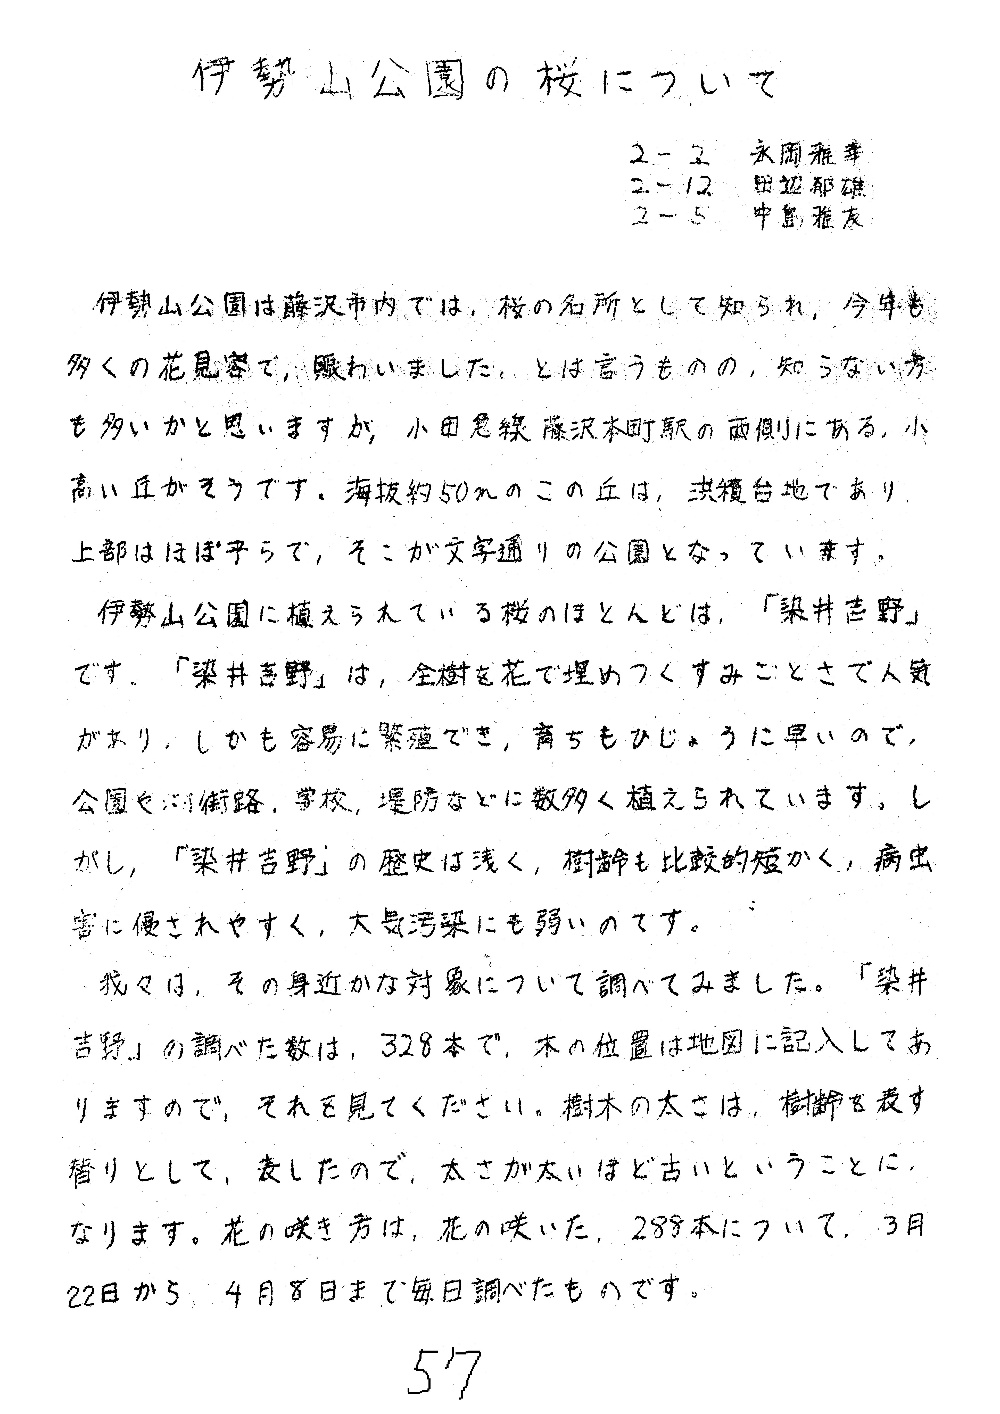 伊勢山公園の桜について
2-2 永岡雅幸
2-12 田辺郁雄
2-5 中島雅友
伊勢山公園は藤沢市内では、桜の名所として知られ、今年も
多くの花見客で、賑わいました。とは言うものの、知らない方
も多いかと思いますが、小田急線藤沢本町駅の西側にある、小
高い丘がそうです。海抜約50mのこの丘は、洪積台地であり、
上部はほぼ平らで、そこが文字通りの公園となっています。
伊勢山公園に植えられている桜のほとんどは、「染井吉野」
です。「染井吉野」は、全樹を花で埋めつくすみごとさで人気
があり、しかも容易に繁殖でき、育ちもひじょうに早いので、
公園や 街路、学校、堤防などに数多く植えられています。し
かし、「染井吉野」の歴史は浅く、樹齢も比較的短かく、病虫
害に侵されやすく、大気汚染にも弱いのです。
我々は、その身近かな対象について調べてみました。「染井
吉野」の調べた数は、328本で、木の位置は地図に記入してあ
りますので、それを見てください。樹木の太さは、樹齢を表す
替りとして、表したので、太さが太いほど古いということに、
なります。花の咲き方は、花の咲いた、288本について、3月
22日から、4月8日まで毎日調べたものです。
57